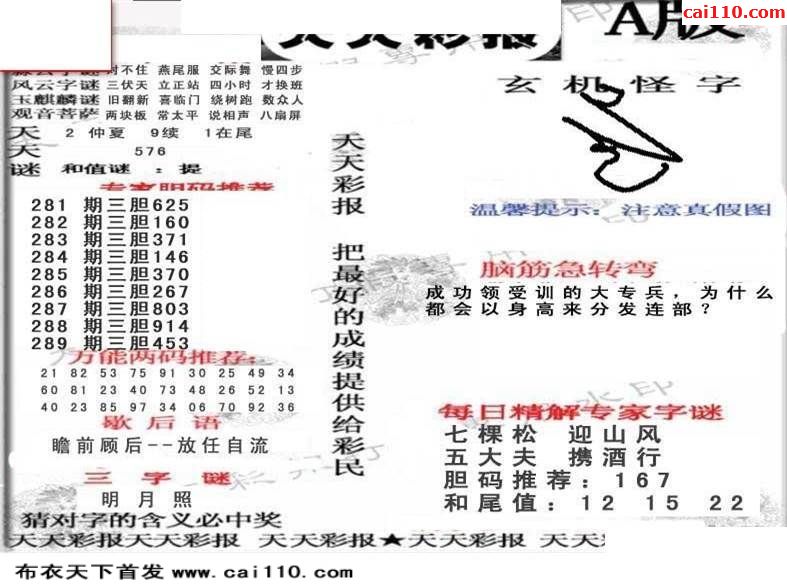 cai110.com
天天彩报
A版
对不住 燕尾服 交际舞 慢四步
风云字谜 三伏天 立正站 四小时 才换班
玉麒麟谜 旧翻新 喜临门 绕树跑 数众人
观音菩萨 两块板 常太平 说相声 八扇屏
天 2 仲夏 9续 1在尾
天 576
谜 和值谜 ：提
专家胆码推荐
281 期三胆625
282 期三胆160
283 期三胆371
284 期三胆146
285 期三胆370
286 期三胆267
287 期三胆803
288 期三胆914
289 期三胆453
万能两码推荐：
21 82 53 75 91 30 25 49 34
60 81 23 40 73 48 26 52 13
40 23 85 97 34 06 70 92 36
歇后语
瞻前顾后--放任自流
三字谜
明月照
猜对字的含义必中奖
天天彩报 把最好的成绩提供给彩民
玄机怪字
温馨提示：注意真假图
脑筋急转弯
成功领受训的大专兵，为什么
都会以身高来分发连部？
每日精解专家字谜
七棵松 迎山风
五大夫 携酒行
胆码推荐：167
和尾值：12 15 22
天天彩报天天彩报 天天彩报★天天彩报 天天
布衣天下首发 www.cai110.com